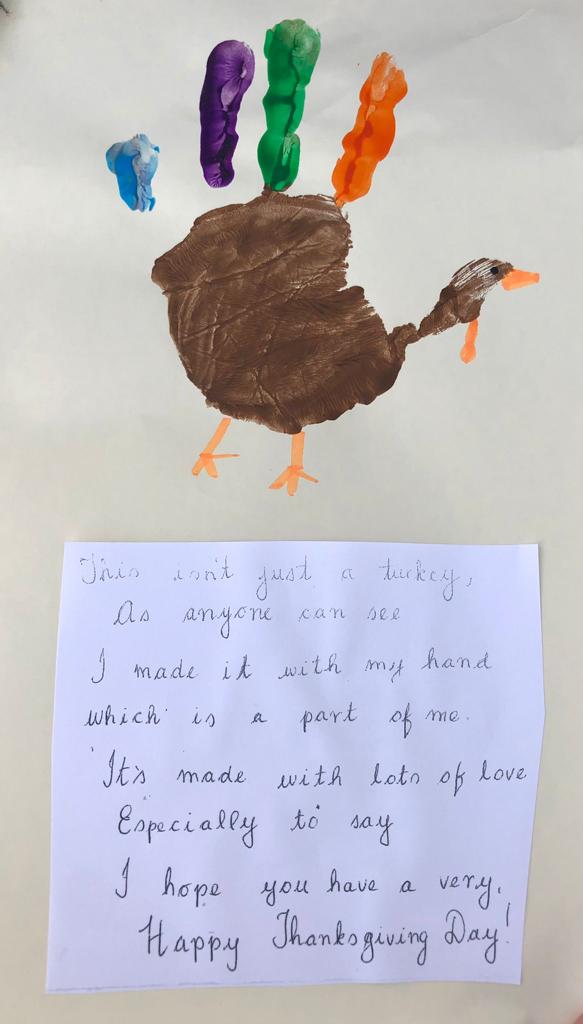 This isn't just a turkey,
As anyone can see
I made it with my hand
which is a part of me.
It's made with lots of love
Especially to say
I hope you have a very,
Happy Thanksgiving Day!